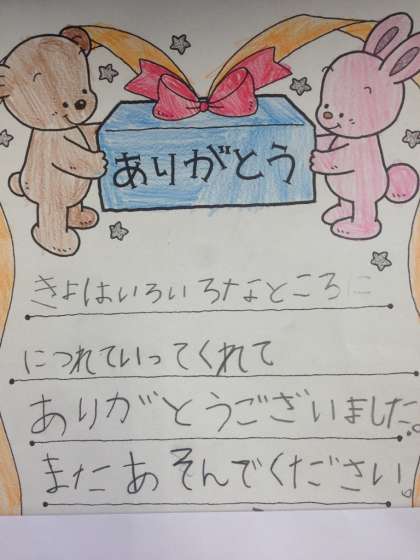 ありがとう
きょはいろいろなところに
につれていってくれて
ありがとうございました。
またあそんでください。